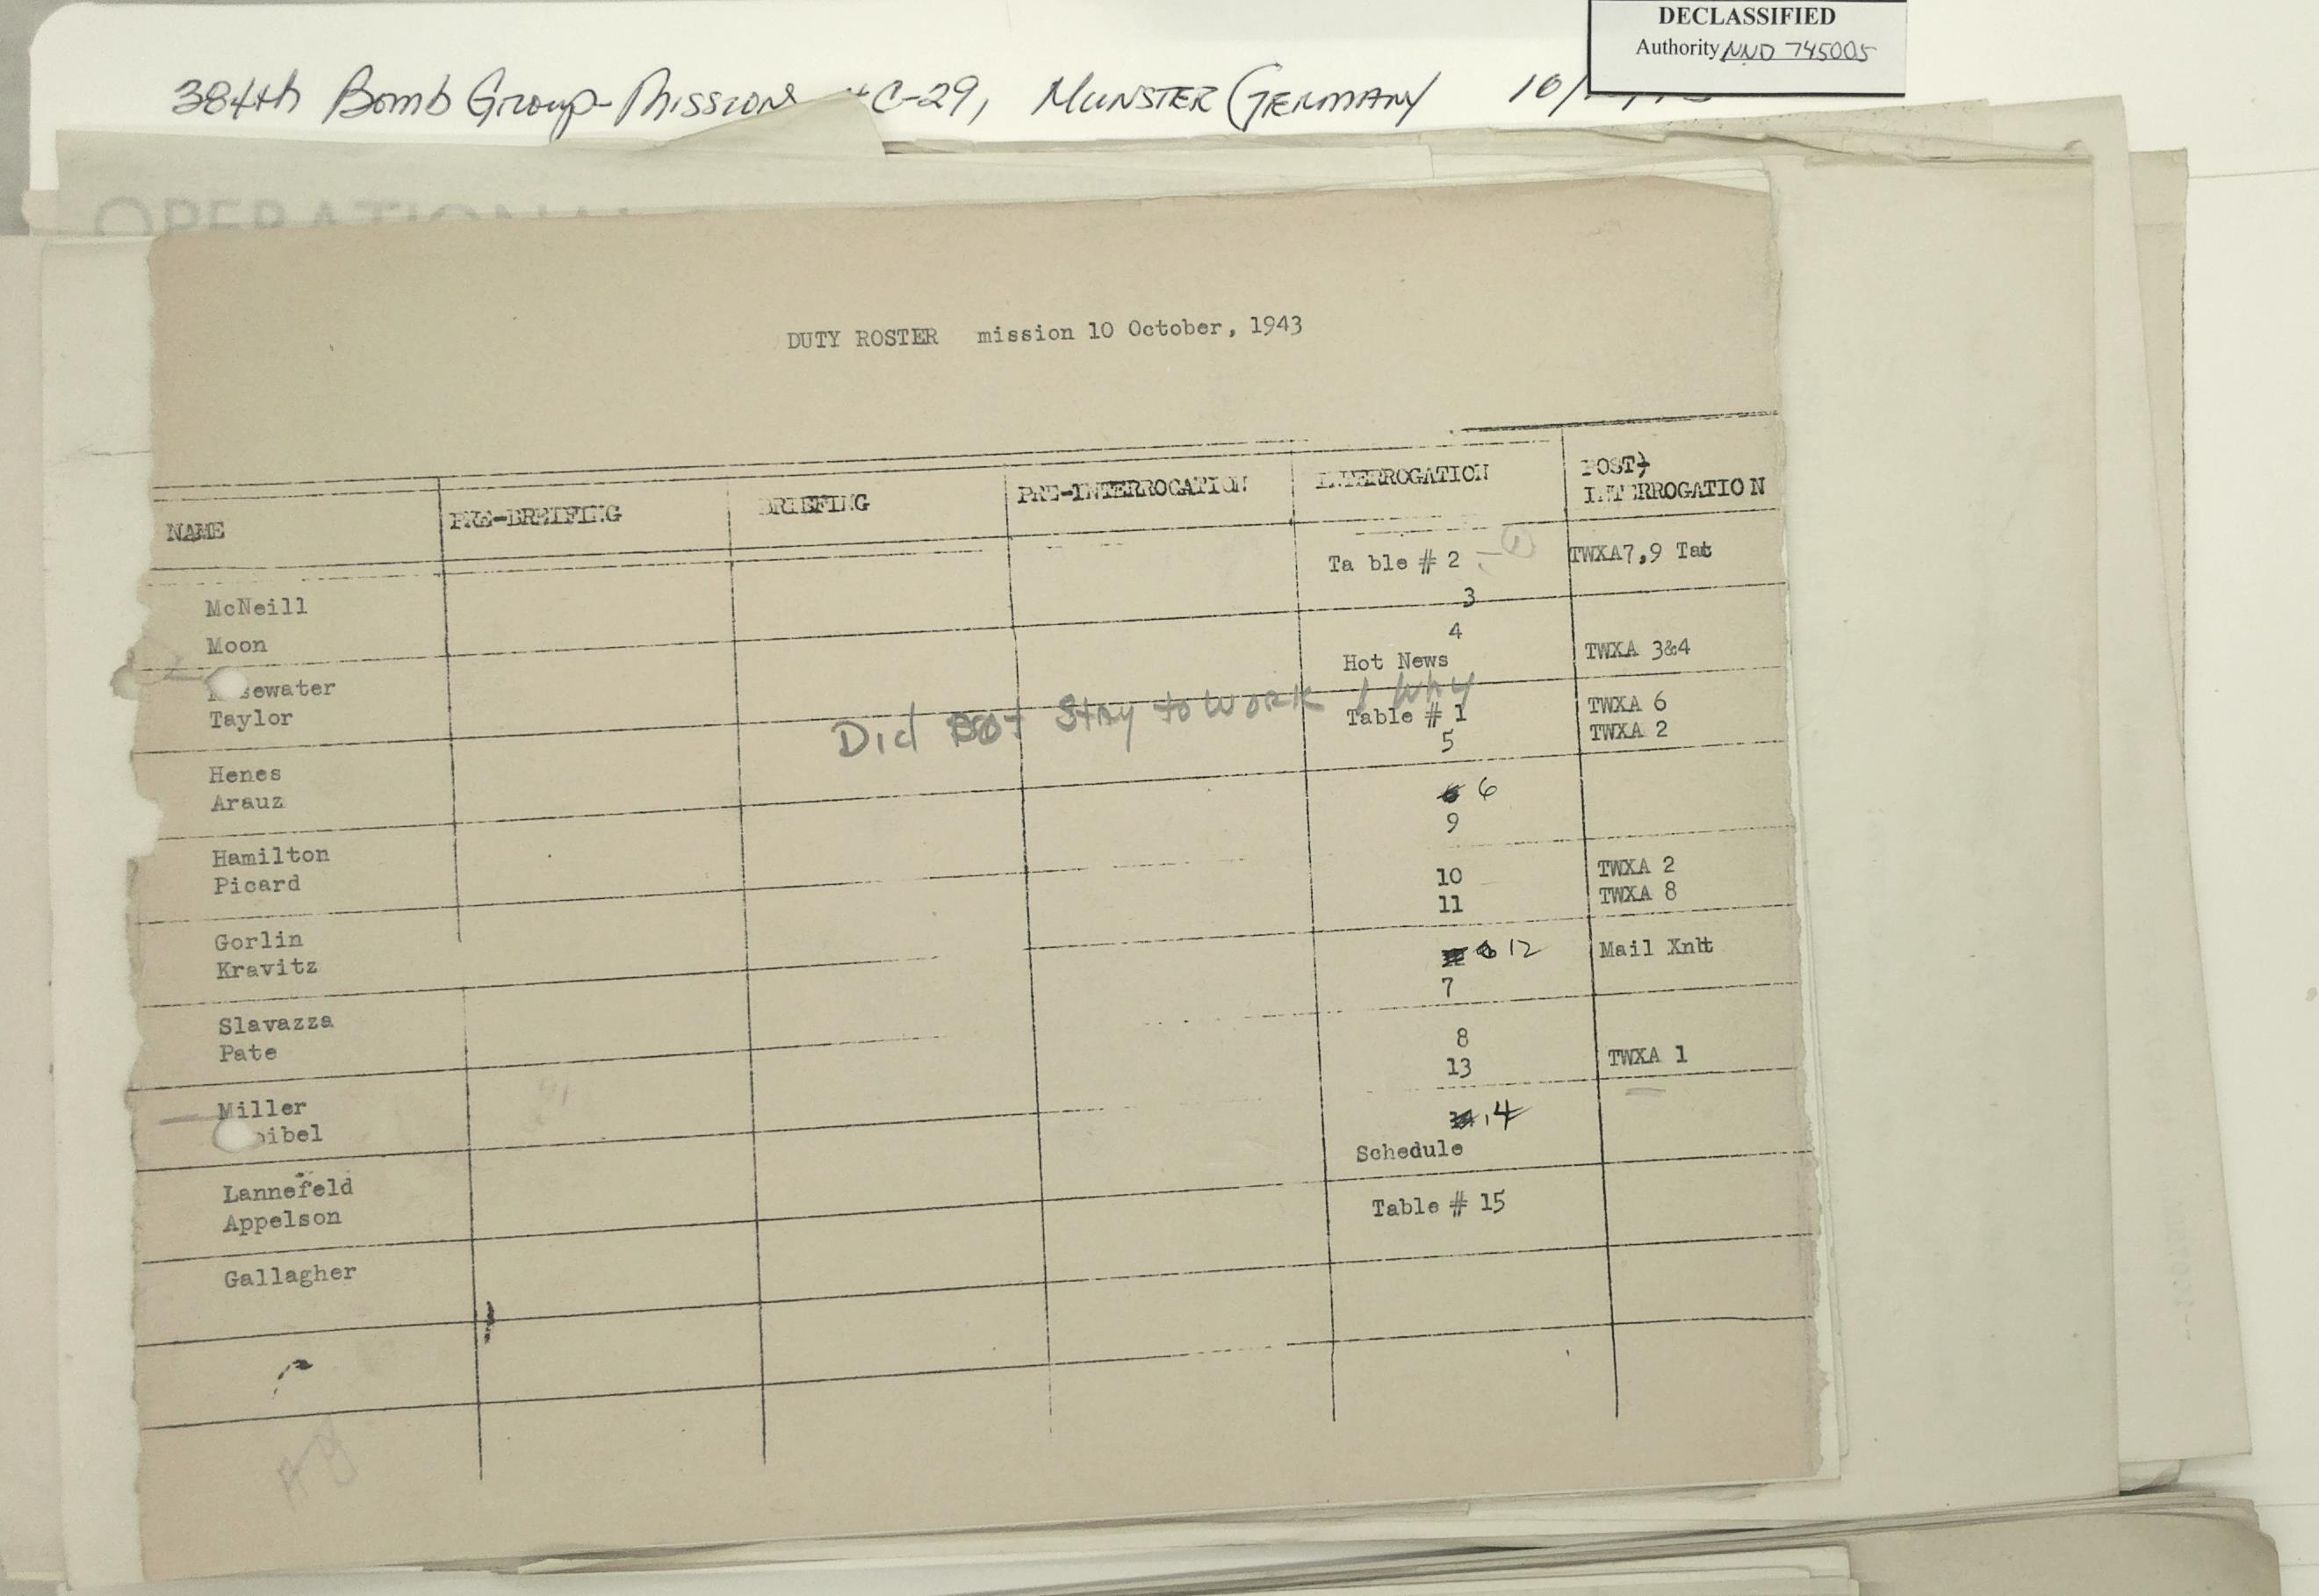 DECLASSIFIED
Authority NND 745005
384th Bomb Group-Mission C-29, MUNSTER GERMANY 10/
OPERATIONAL
DUTY ROSTER mission 10 October, 1943
NAME PRE-BREIFING BRIEFING PRE-INTERROGATION INTERROGATION POST} INTERROGATION
McNeill Table # 2 TWXA7,9 Tat
Moon 3
sewater 4
Taylor Hot News TWXA 3&4
Did not Stay to work / Why
Henes Table # 1 TWXA 6
Arauz 5 TWXA 2
Hamilton 6
Picard 9
Gorlin 10 TWXA 2
Kravitz 11 TWXA 8
Slavazza 12 Mail Xnht
Pate 7
Miller 8
ibel 13 TWXA 1
Lannefeld 14
Appelson Schedule
Gallagher Table # 15